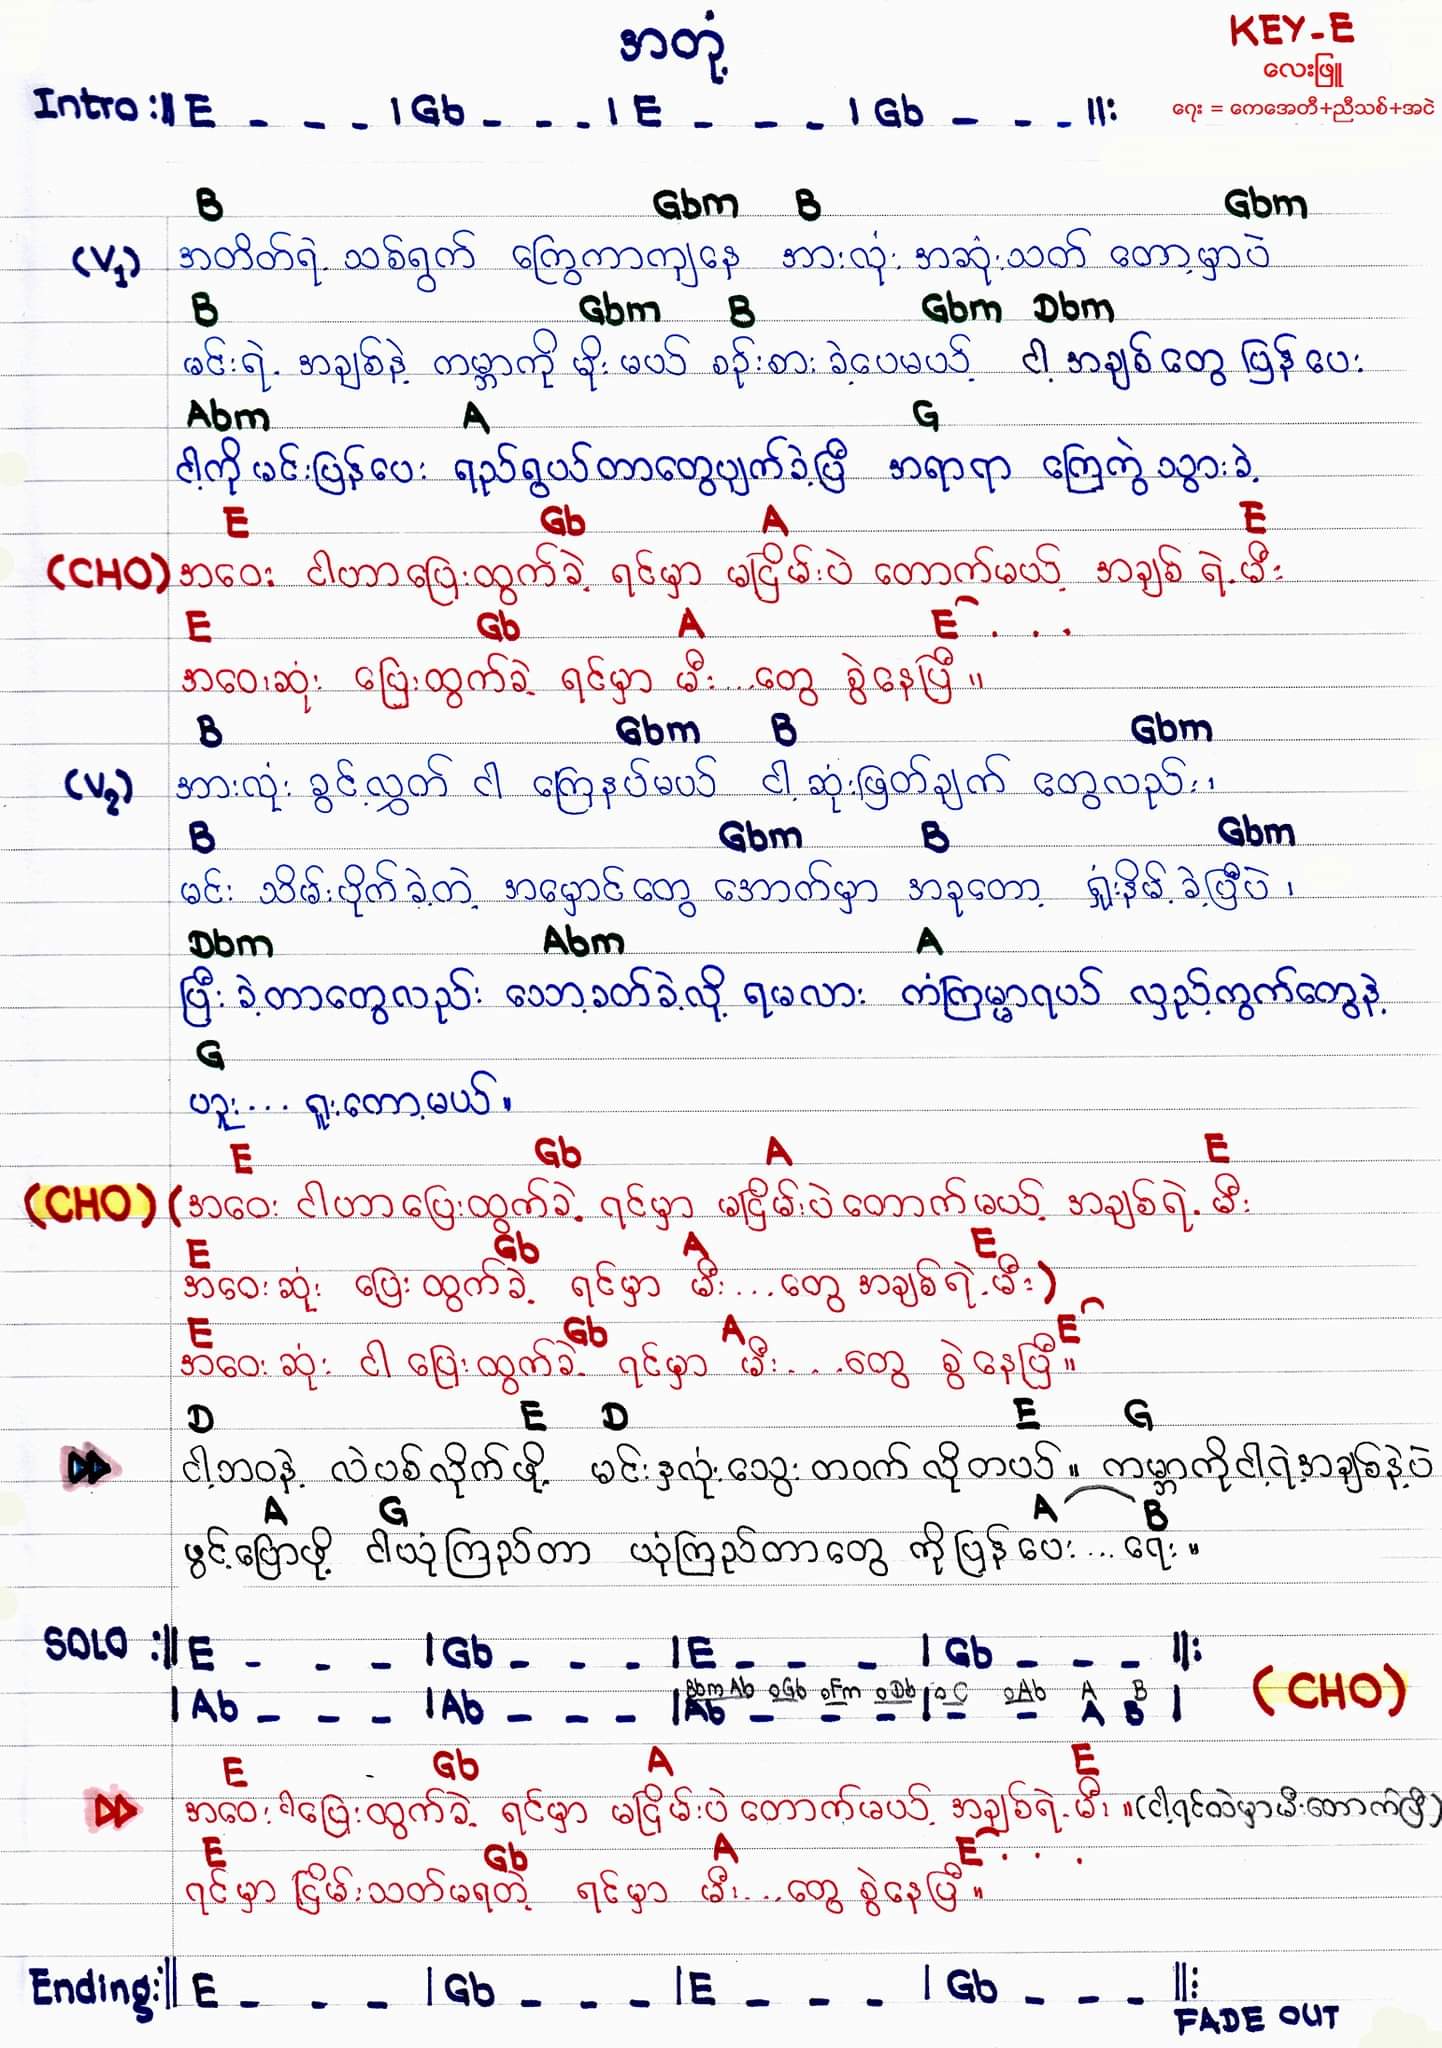 အတုံ့
KEY-E
လေးဖြူ
ရေး = ကေအေတီ+ညီသစ်+အငဲ
Intro :|| E _ _ _ | Gb _ _ _ | E _ _ _ | Gb _ _ _ ||:
B Gbm B Gbm
(V1) အတိတ်ရဲ့ သစ်ရွက် ကြွေကာကျနေ အားလုံး အဆုံးသတ် တော့မှာပဲ
B Gbm B Gbm Dbm
မင်းရဲ့ အချစ်နဲ့ ကမ္ဘာကို မိုးမယ် စဉ်းစားခဲ့ပေမယ့် ငါ့ အချစ်တွေ ပြန်ပေး
Abm A G
ငါ့ကို မင်းပြန်ပေး ရည်ရွယ်တာတွေပျက်ခဲ့ပြီ အရာရာ ကြေကွဲသွားခဲ့
E Gb A E
(CHO) အဝေး ငါဟာပြေးထွက်ခဲ့ ရင်မှာ မငြိမ်းပဲ တောက်မယ့် အချစ်ရဲ့မီး
E Gb A E . . .
အဝေးဆုံး ပြေးထွက်ခဲ့ ရင်မှာ မီး...တွေ စွဲနေပြီ။
B Gbm B Gbm
(V2) အားလုံး ခွင့်လွှတ် ငါ ကြေနပ်မယ် ငါ့ ဆုံးဖြတ်ချက် တွေလည်း၊
B Gbm B Gbm
မင်း သိမ်းပိုက်ခဲ့တဲ့ အမှောင်တွေ အောက်မှာ အခုတော့ ရှုံးနိမ့်ခဲ့ပြီပဲ၊
Dbm Abm A
ပြီးခဲ့တာတွေလည်း သော့ခတ်ခဲ့လို့ ရမလား ကံကြမ္မာရယ် လှည့်ကွက်တွေနဲ့
G
ယူး... ရူးတော့မယ်။
E Gb A E
(CHO) (အဝေး ငါဟာပြေးထွက်ခဲ့ ရင်မှာ မငြိမ်းပဲတောက်မယ့် အချစ်ရဲ့မီး
E Gb A E
အဝေးဆုံး ပြေးထွက်ခဲ့ ရင်မှာ မီး...တွေ အချစ်ရဲ့မီး)
E Gb A E
အဝေးဆုံး ငါ ပြေးထွက်ခဲ့ ရင်မှာ မီး....တွေ စွဲနေပြီ။
D E D E G
ငါ့ဘဝနဲ့ လဲပစ်လိုက်ဖို့ မင်းနှလုံးသွေးတဝက် လိုတယ်။ ကမ္ဘာကိုငါ့ရဲ့အချစ်နဲ့ပဲ
A G A B
ဖွင့်ပြောဖို့ ငါယုံကြည်တာ ယုံကြည်တာတွေ ကိုပြန်ပေး...ရေး။
SOLO :|| E _ _ _ | Gb _ _ _ | E _ _ _ | Gb _ _ _ ||:
Bbm Ab Gb Fm Db C Ab A B
| Ab _ _ _ | Ab _ _ _ | Ab _ _ _ | _ _ A B | (CHO)
E Gb A E
အဝေး ငါပြေးထွက်ခဲ့ ရင်မှာ မငြိမ်းပဲတောက်မယ့် အချစ်ရဲ့မီး။(ငါ့ရင်ထဲမှာမီးတောက်ပြီ)
E Gb A E . . .
ရင်မှာ ငြိမ်းသတ်မရတဲ့ ရင်မှာ မီး...တွေ စွဲနေပြီ။
Ending:|| E _ _ _ | Gb _ _ _ | E _ _ _ | Gb _ _ _ ||:
FADE OUT